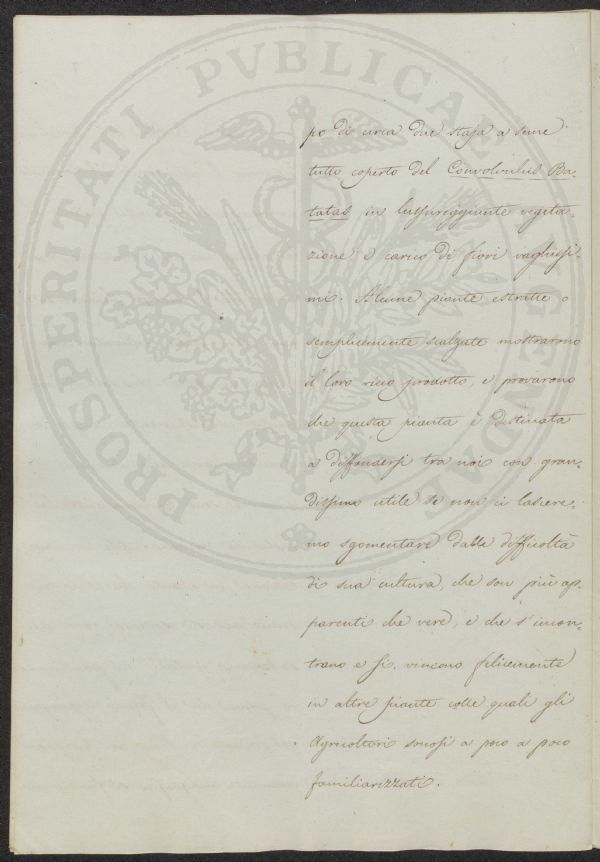 PROSPERITATI PVBLICAE AVGENDAE
po di circa due staja a seme
tutto coperto del Convolvulus Ba-
tatas in lussureggiante vegeta-
zione e carico di fiori vaghissi-
mi. Alcune piante estratte o
semplicemente scalzate mostrarono
il loro ricco prodotto, e provarono
che questa pianta è destinata
a diffondersi tra noi con gran-
dissimo utile se non ci lascere-
mo sgomentare dalle difficoltà
di sua cultura, che son più ap-
parenti che vere, e che s'incon-
trano e si vincono felicemente
in altre piante colle quali gli
Agricoltori sonosi a poco a poco
familiarizzati.